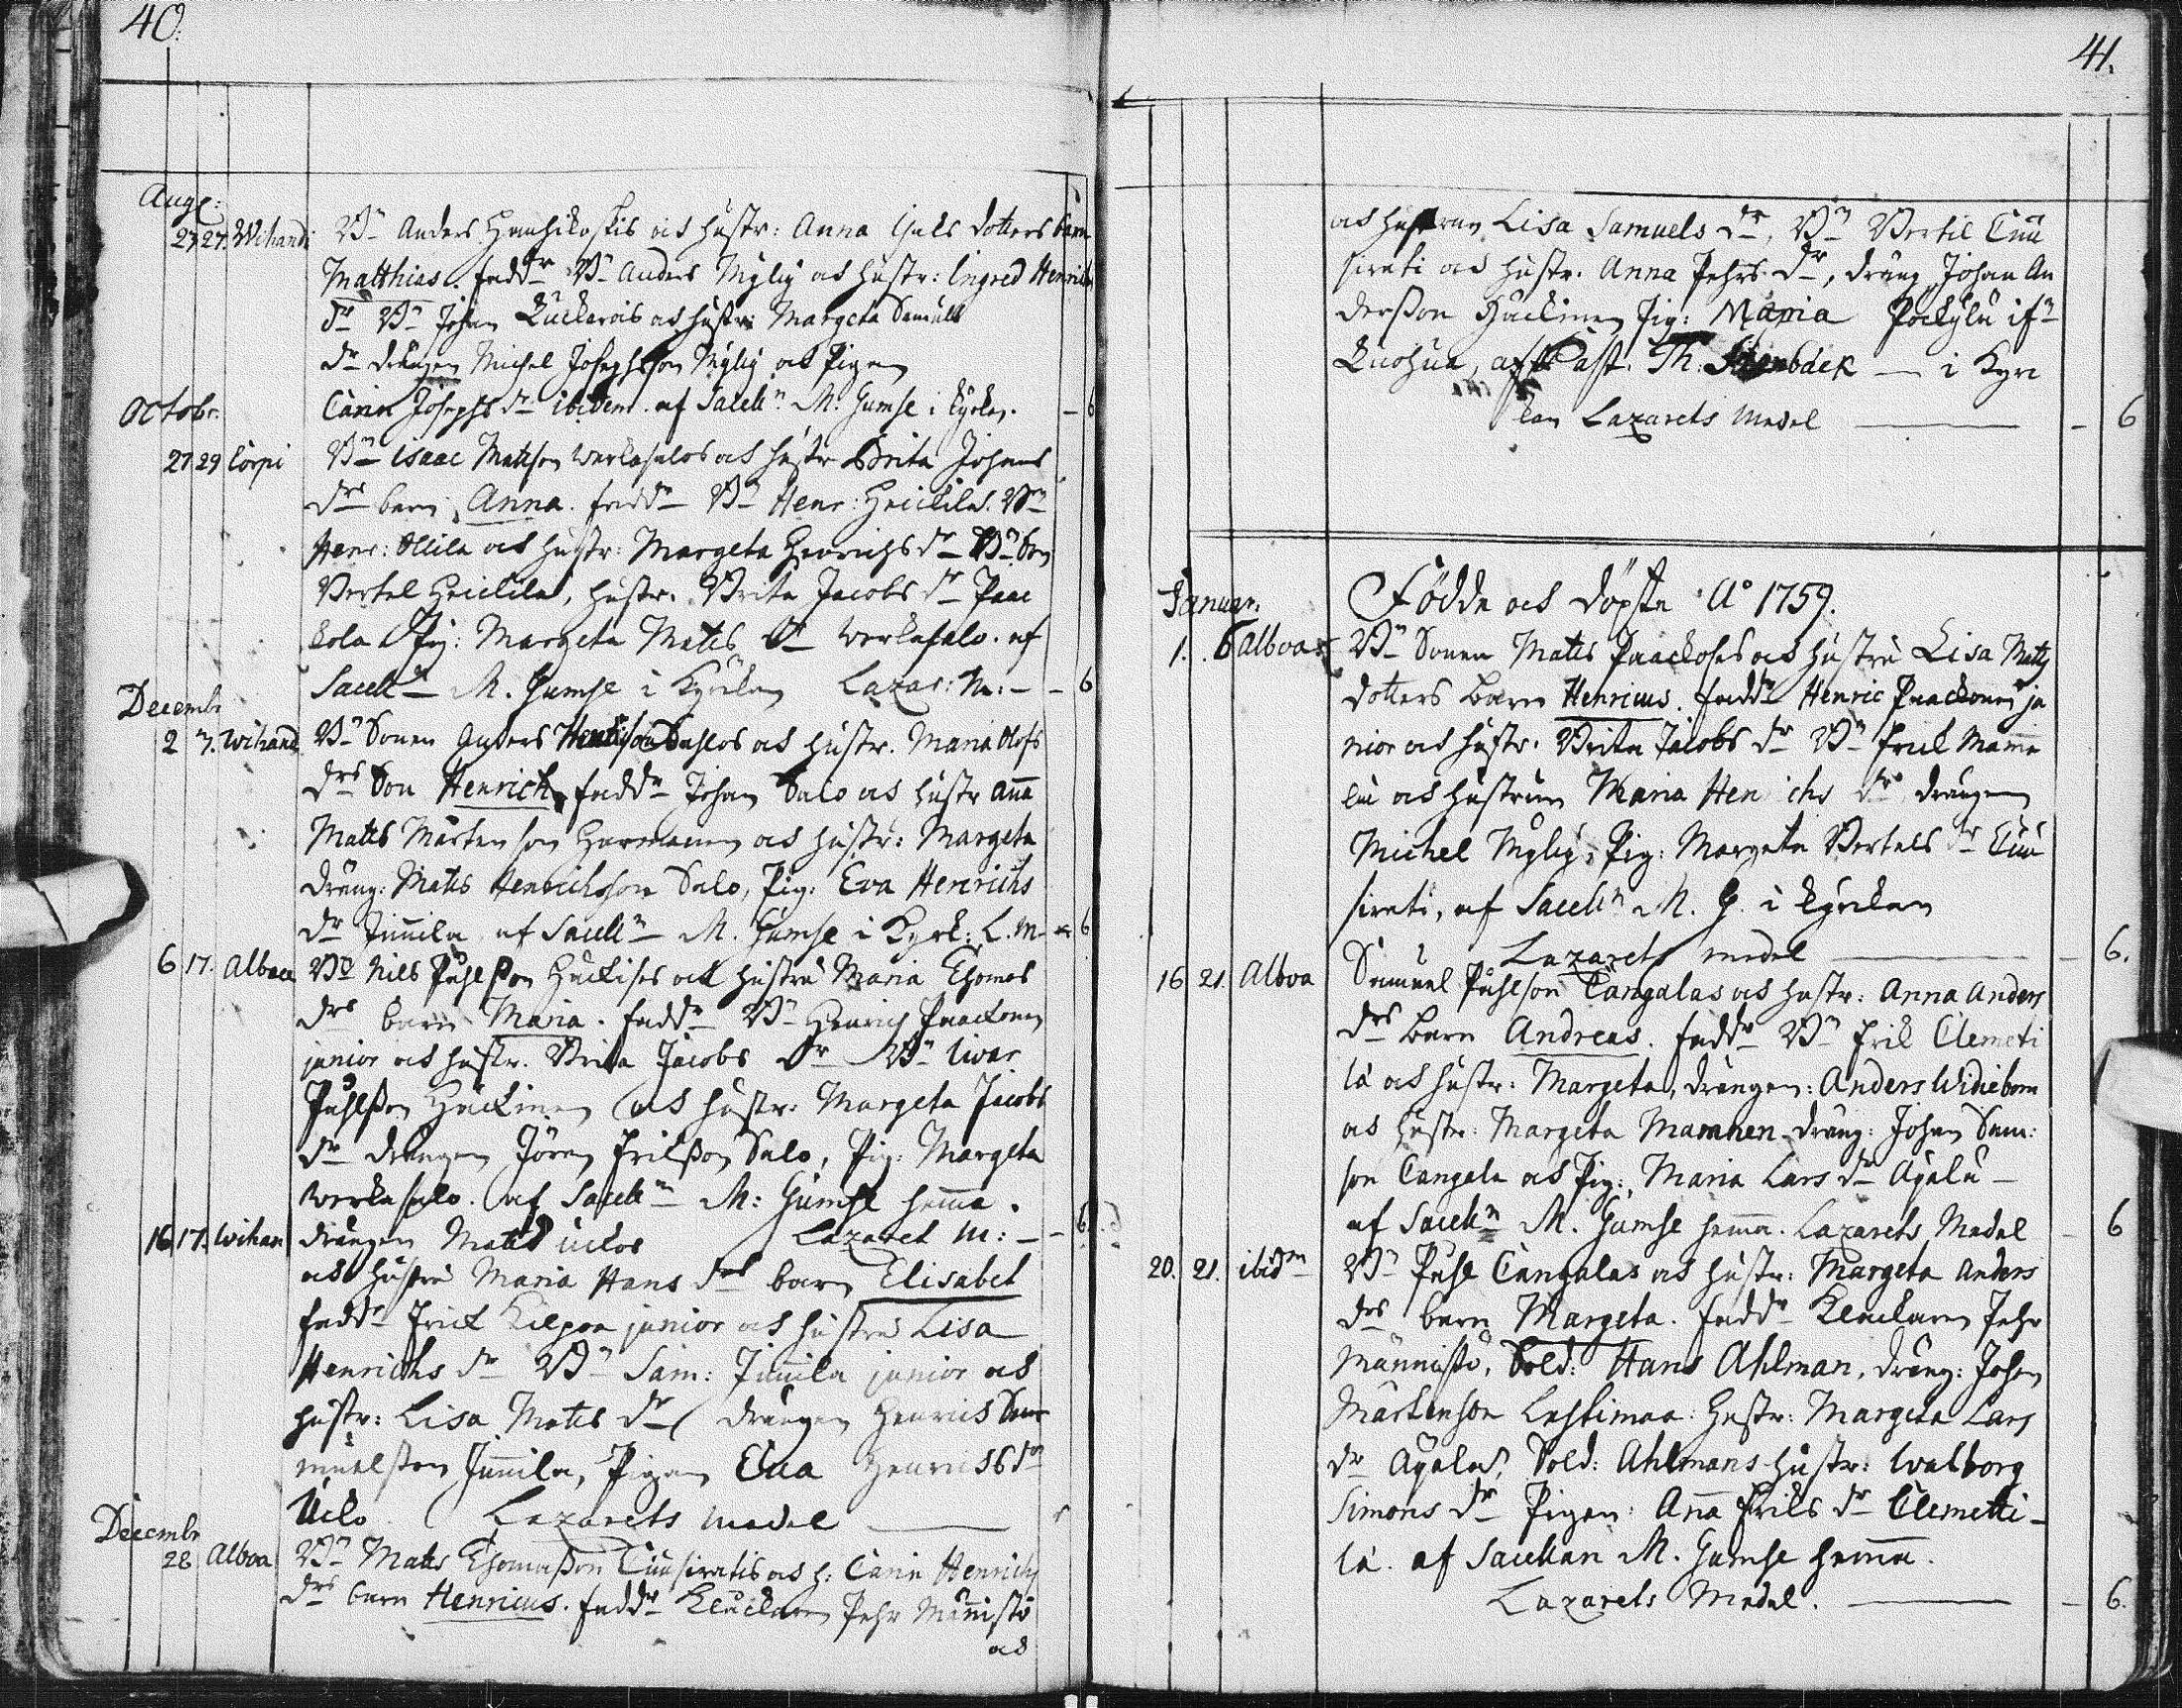 40.
Aug:
27 27. Wihandi Bn Anders Hauhikoskis och hustr: Anna Nils dotters barn
Matthias. faddr Bn Anders Mÿlÿ och hustr: Ingred Henrichs
dr Bn Johan och hustr: Margeta Samuels
dr drängen Michel Josephsson Mÿlÿ och Pigan
Carin Josephs dr ibidem. af Sacelln M: Gumse i kyrkan. – 6
Octobr:
27 29 Corpi Bn Isaac Mattson Werkasalos och hustr Brita Johans
drs barn Anna. faddr Bn Henr: Heickilä. Bn
Henr: Ollila och hustr: Margeta Henrichs dr Bn Son
Bertel Heickilä, hustr: Brita Jacobs dr Paac
kola Pig: Margeta Matts dr Werkasalo. af
Sacelln M. Gumse i Kyrkan Lazar: M: – – 6
Decembr
2 7. Wihand Bn Sonen Anders Henrichson Sahlos och hustr. Maria Olofs
drs Son Henrich, faddr Johan Salo och hustr Anna
Matts Mårtenson Harmanen och hustr: Margeta
dräng: Matts Henrichsson Salo, Pig: Eva Henrichs
dr Junnila af Sacelln M. Gumse i Kyrk: L. M – 6
6 17. Alboa Bn Nils Påhlsson Huckises och hustru Maria Thomas
drs barn Maria. faddr Bn Henrich Paackonen
junior och hustr. Brita Jacobs dr Bn Ivar
Påhlsson Hackinen och hustr: Margeta Jacobs
dr drängen Jören Erilsson Salo, Pig: Margeta
Werkasalo. af Sacelln M: Gumse hemma.
16 17. Wihan drängen Matts Uckos Lazaret M: – – 6
och hustru Maria Hans drs barn Elisabet
faddr Erick Kilpoa junior och hustru Lisa
Henrichs dr Bn Sam: Junnila junior och
hustr: Lisa Matts dr drängen Henrich Sam
muelsson Junnila, Pigan Eva Henrichs dr
Ucko Lazarets Medel
Decembr
28 Alboa Bn Matts Thomasson Tuusiratis och h: Carin Henrichs
drs barn Henricus. faddr Klockaren Pehr Männistö
och
41.
och hustrun Lisa Samuels dr, Bn Bertil Tuu
sirati och hustr. Anna Pehrs dr, dräng Johan An
dersson Huckinen Pig: Maria
af Past. Th: Stenbäck — i Kyr
kan Lazarets Medel – 6
Födde och döpte Ao 1759.
Januar:
1. 6 Alboa Bn Sonen Matts Paackoses och hustru Lisa Matts
dotters barn Henricus. faddr Henric Paackonen ju
nior och hustr. Brita Jacobs dr Bn Erik Mamma
lin och hustrun Maria Henrichs dr drängen
Michel Mÿlÿ, Pig: Margeta Bertels dr Tuu
sirati, af Sacelln M. G. i kyrkan
Lazarets medel – 6.
16 21. Alboa Samuel Påhlson Cangalas och hustr: Anna Anders
drs barn Andreas. faddr Bn Erik Clemeti
lä och hustr: Margeta, drängen: Anders Widiebom
och hustr: Margeta Mamnen dräng: Johan Sam:
son Cangala och Pig: Maria Lars dr Äÿälä –
af Sacelln M. Gumse hemma. Lazarets Medel – 6
20. 21. ibidm Bn Påhl Cangalas och hustr: Margeta Anders
drs barn Margeta. faddr Klockaren Pehr
Männistö, Sold: Hans Ahlman, dräng: Johan
Mårtenson Lestimaa: Hustr: Margeta Lars
dr Äÿälä, Sold: Ahlmans hustr: Walborg
Simons dr Pigan: Anna Eriks dr Clemetti–
lä. af Sacellan M. Gumse hemma.
Lazarets Medel. – 6.